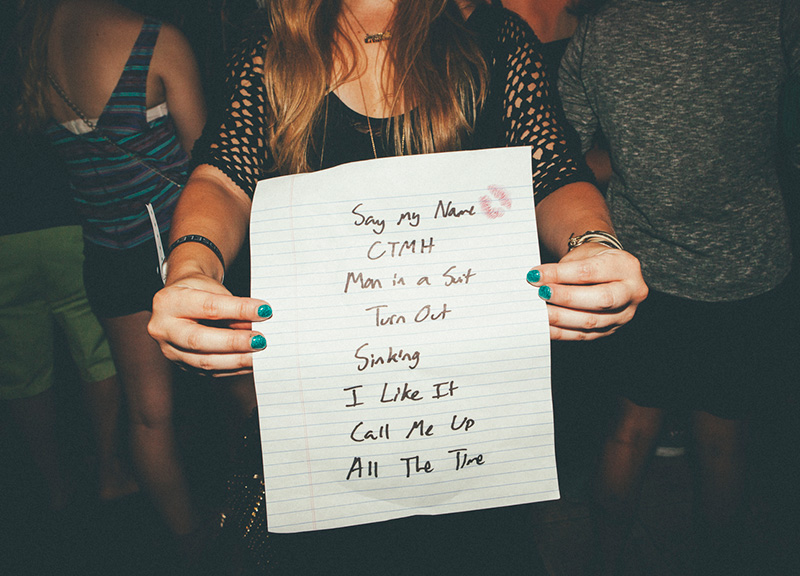 Say my Name
CTMH
Man in a Suit
Turn Out
Sinking
I Like It
Call Me Up
All The Time